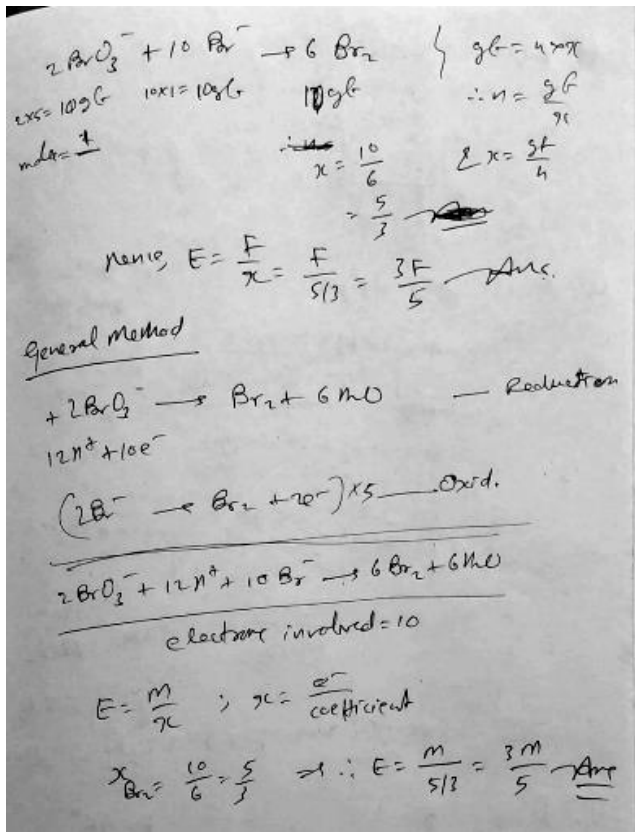 2 BrO3⁻ + 10 Br⁻ → 6 Br2 { gE = n × x
2x5 = 10gE 10x1 = 10gE 10gE ∴ n = gE/x
mole =
x = 10/6 & x = gE/n
= 5/3
Hence, E = F/x = F/5/3 = 3F/5 Ans.
General Method
+ 2BrO3⁻ → Br2 + 6H2O — Reduction
12H⁺ + 10e⁻
(2Br⁻ → Br2 + 2e⁻) x5 — Oxid.
2BrO3⁻ + 12H⁺ + 10 Br⁻ → 6 Br2 + 6H2O
electrons involved = 10
E = M/x ; x = e⁻/coefficient
x Br2 = 10/6 = 5/3 ⇒ ∴ E = M/5/3 = 3M/5 Ans